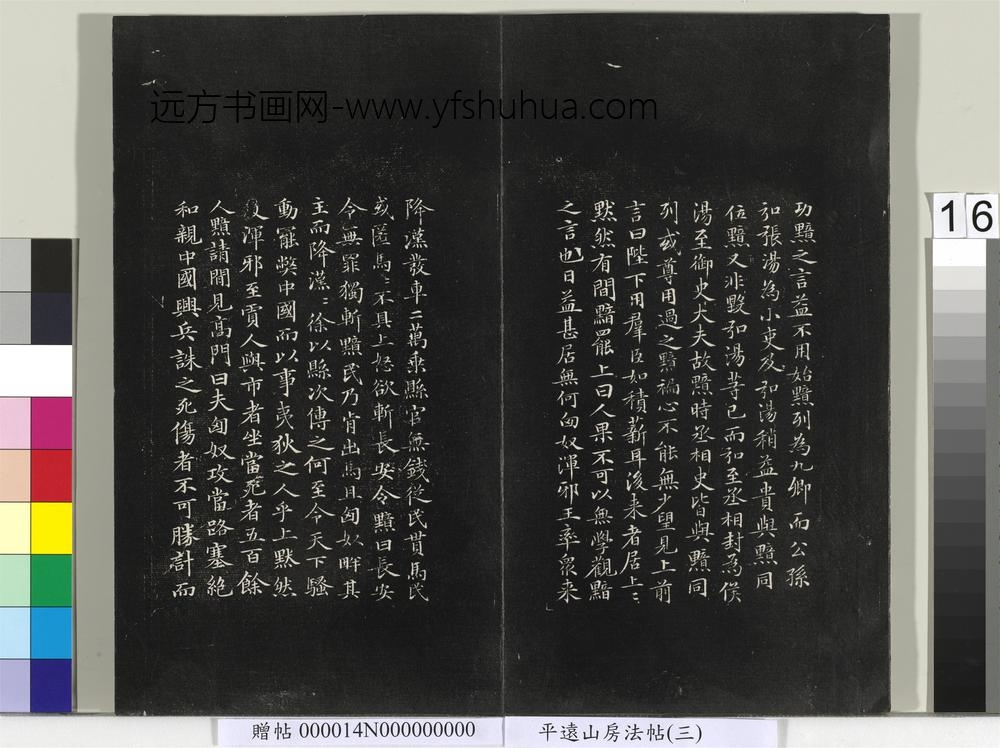 远方书画网-www.yfshuhua.com
功黯之言益不用始黯列為九卿而公孫
弘張湯為小吏及弘湯稍益貴與黯同
位黯又非毀弘湯等已而弘至丞相封為侯
湯至御史大夫故黯時丞相史皆與黯同
列或尊用過之黯褊心不能無少望見上前
言曰陛下用羣臣如積薪耳後来者居上〻
默然有間黯罷上曰人果不可以無學觀黯
之言也日益甚居無何匈奴渾邪王率眾来
降漢發車二萬乘縣官無錢從民貰馬民
或匿馬〻不具上怒欲斬長安令黯曰長安
令無罪獨斬黯民乃肯出馬且匈奴畔其
主而降漢〻徐以縣次傳之何至令天下騷
動罷獘中國而以事夷狄之人乎上默然
及渾邪至賈人與市者坐當死者五百餘
人黯請間見高門曰夫匈奴攻當路塞絕
和親中國興兵誅之死傷者不可勝計而
16
贈帖 000014N000000000
平遠山房法帖(三)